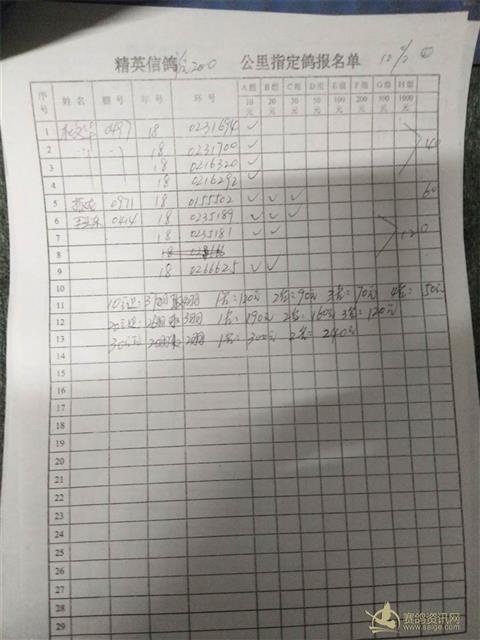 精英信鸽 200 公里指定鸽报名单
序号 姓名 棚号 年号 环号 A组10元 B组20元 C组30元 D组50元 E组100元 F组200元 G组500元 H组1000元
1 0497 18 0231694 ✓
2 18 0231700 ✓
3 18 0216320 ✓ 40
4 18 0216292 ✓
5 0971 18 0155502 ✓ ✓ ✓ 60
6 0414 18 0235189 ✓ ✓ ✓
7 18 0235181 ✓ ✓ 120
8 18
9 18 0266625 ✓ ✓
10
11 10元 1名:120元 2名:90元 3名:70元 4名:50元
12 20元 1名:190元 2名:160元 3名:120元
13 30元 1名:300元 2名:240元
14
15
16
17
18
19
20
21
22
23
24
25
26
27
28
29
赛鸽资讯网
www.saige.com